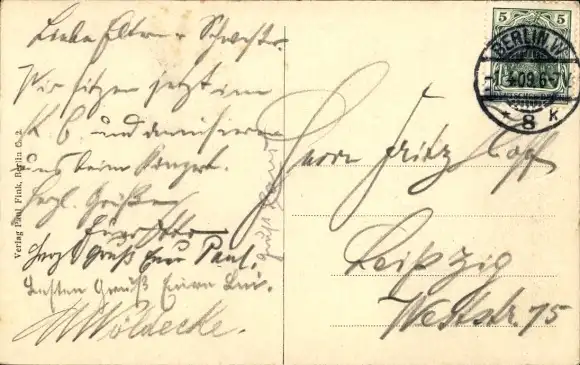 Liebe Eltern u. Schwester.
Wir sitzen jetzt im
K. C. und amüsieren
uns beim Konzert.
Herzl. Grüßen
Herzl. Gruß Euer Paul.
Besten Gruß Eure
W. Woldecke.
Verlag Paul Fink, Berlin C. 2
5 5
BERLIN, W.
4.09. 6-7V
* 8 k
Herrn Fritz
Leipzig
Weststr. 75